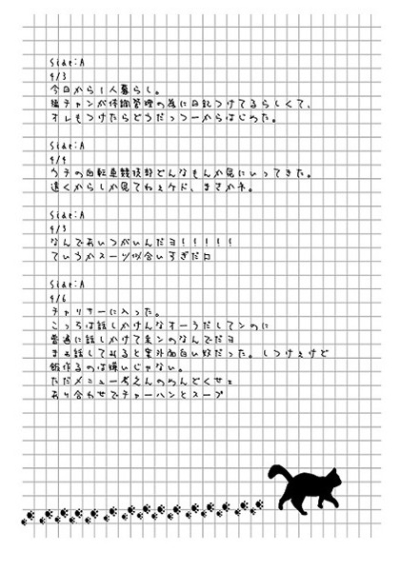 Side:A
4/3
今日から1人暮らし。
福チャンが体調管理の為に日記つけてるらしくて、
オレもつけたらどうだっつーからはじめた。
Side:A
4/4
ウチの自転車競技部どんなもんか見にいってきた。
遠くからしか見てねェケド、まさかネ。
Side:A
4/5
なんであいつがいんだヨ!!!!!!
ていうかスーツ似合いすぎだロ
Side:A
4/6
チャリサーに入った。
こっちは話しかけんなオーラだしてンのに
普通に話しかけて来ンのなんでだヨ
まぁ話してみると案外面白い奴だった。しつけぇけど
飯作るのは嫌いじゃない。
ただメニュー考えんのめんどくせェ
あり合わせでチャーハンとスープ